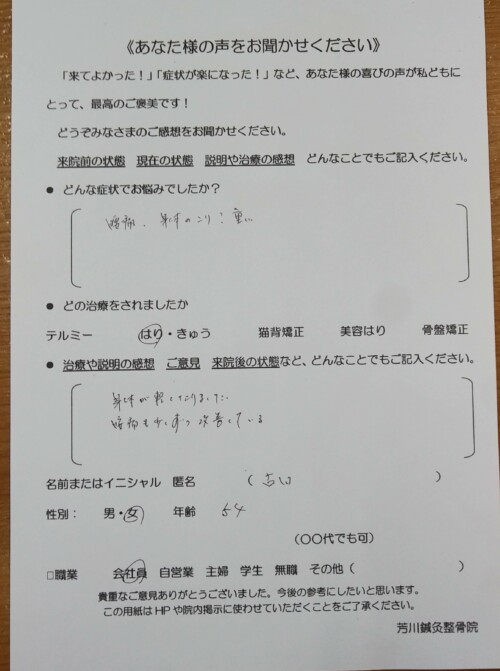 《あなた様の声をお聞かせください》
「来てよかった！」「症状が楽になった！」など、あなた様の喜びの声が私どもに
とって、最高のご褒美です！
どうぞみなさまのご感想をお聞かせください。
来院前の状態 現在の状態 説明や治療の感想 どんなことでもご記入ください。
● どんな症状でお悩みでしたか？
腰痛、身体のこり！重い
● どの治療をされましたか
テルミー はり・きゅう 猫背矯正 美容はり 骨盤矯正
● 治療や説明の感想 ご意見 来院後の状態など、どんなことでもご記入ください。
身体が軽くなりました
腰痛も少しずつ改善している
名前またはイニシャル 匿名 ( )
性別： 男・女 年齢 54
(〇〇代でも可)
□職業 会社員 自営業 主婦 学生 無職 その他 ( )
貴重なご意見ありがとうございました。今後の参考にしたいと思います。
この用紙は HP や院内掲示に使わせていただくことをご了承ください。
芳川鍼灸整骨院